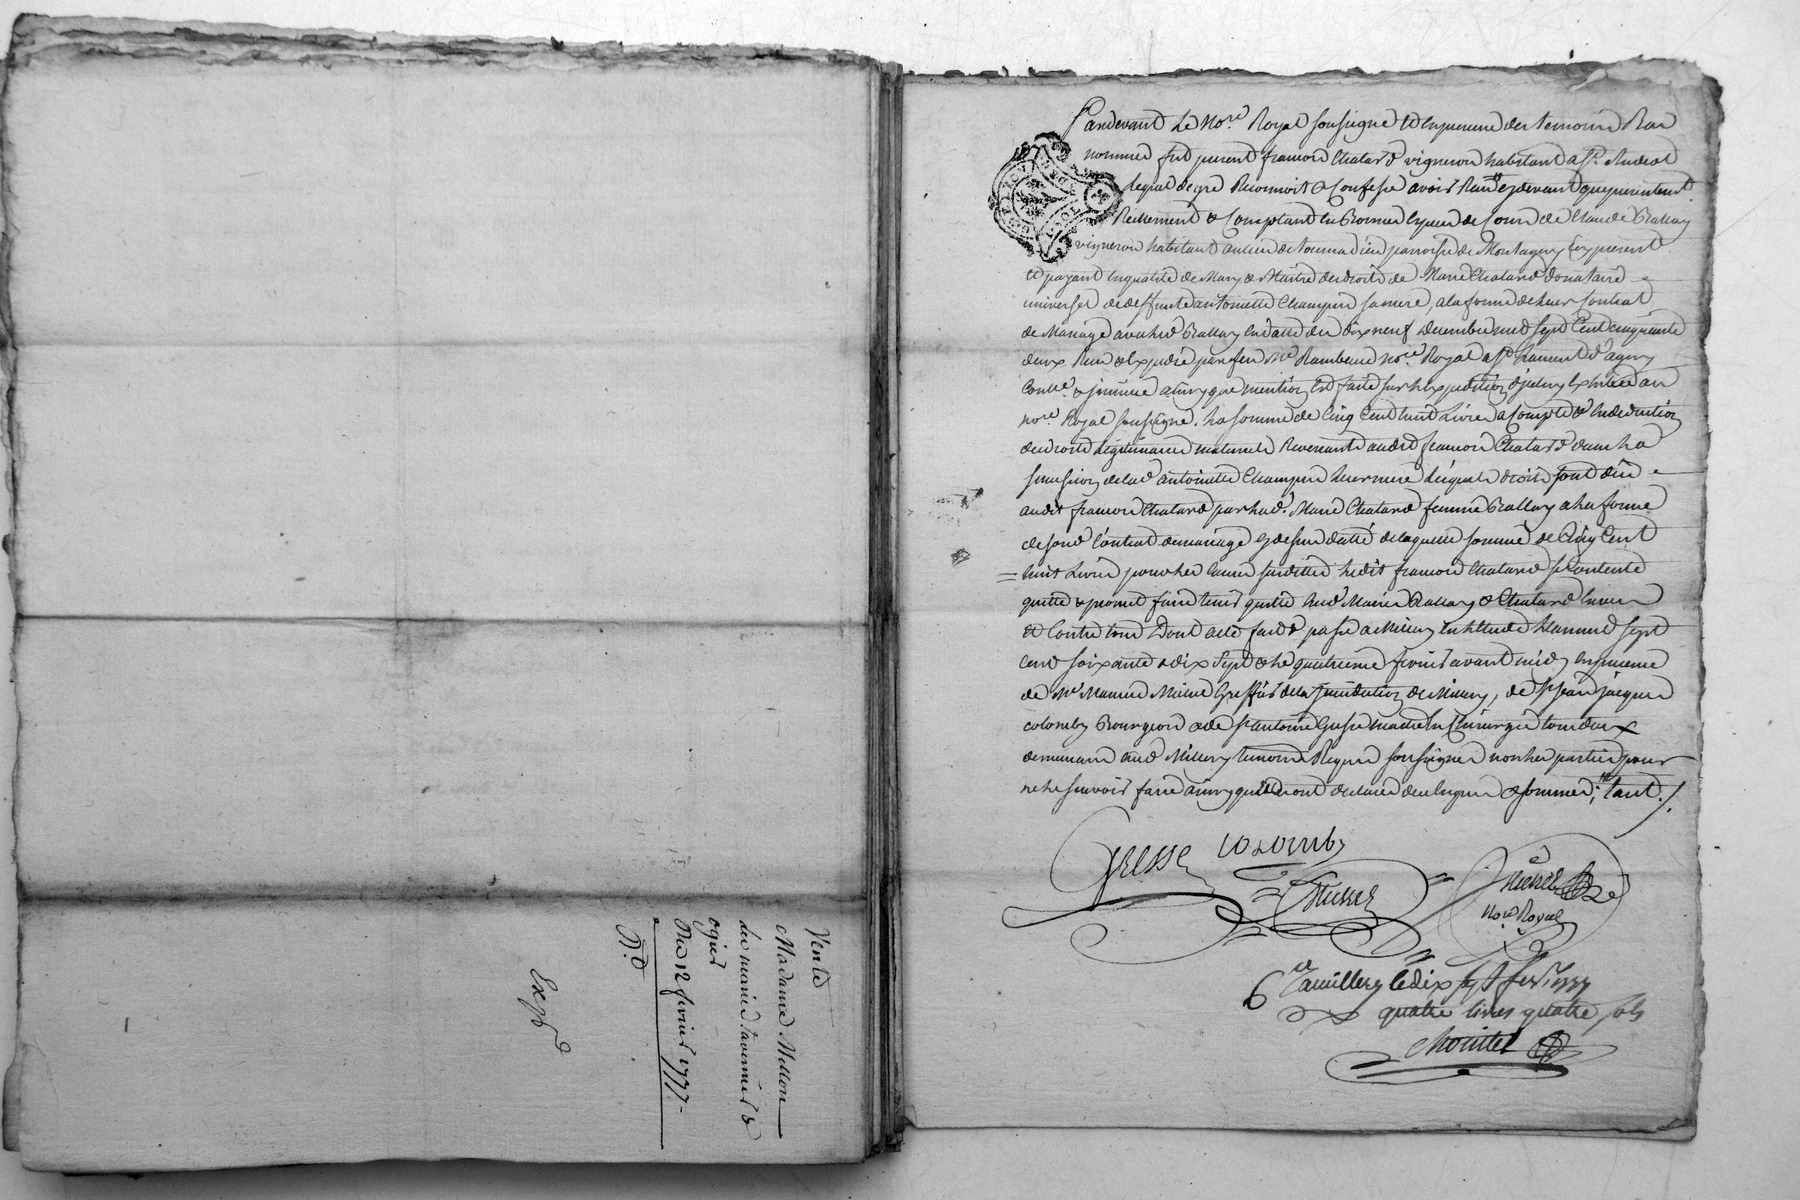 Vente
Madame Mellon
des mariés tavernier &
ogier
Du 12 fevrier 1777
Exp.d
Pardevant Le No.re Royal soussigné et En presence des temoins Bas
nommés fut present francois Chatard vigneron habitant a St. Andeol
lequel de gré Reconnoit & Confesse avoir Reçu cydevant que presentem.t
Reellement & Comptant En Bonnes Especes de Cours de Claude Ballay
vigneron habitant au lieu de paroisse de Montagny Cy present
et payant En qualité de Mary & Maitre des droits de Marie Chatard donataire
universel de deffunte antoinette Champin sa mere, a la forme de leur Contrat
de Mariage avec led Ballay En datte du dix neuf decembre mil sept Cent cinquante
deux Recu & Expedié par feu Me Rambaud No.re Royal a St. Laurent d'agny
Conllé & insinué ainsy que mention Est faite sur L'expedition d'jceluy Exhibée au
no.re Royal soussigné. La somme de Cinq Cent huit Livres a Compte & En deduction
des droits Legitimaires maternels Revenants audit francois Chatard dans La
succession de lad antoinette Champin Leur mere Lesquels droits sont dûs
audit francois Chatard par lad. Marie Chatard femme Ballay a La forme
de sond Contrat de mariage cy dessus datté de laquelle somme de Cinq Cent
huit Livres pour les Causes susdittes Ledit francois Chatard se Contente
quitte & promet faire tenir quitte Lesd Mariés Ballay & Chatard Envers
Et Contre tous Dont acte fait & passé a Millery En L'Etude L'an mil sept
cent soixante & dix sept & Le quatrieme fevrier avant midy En presence
de Me Maurice Michel Greffier de la Jurisdiction de Millery, de Sr Jean jacques
colomby Bourgeois & de Sr antoine Gresse maitre En Chirurgie tous deux
demeurans aud Millery temoins Requis soussignés non les parties pour
ne le sçavoir faire ainsy qu'elles ont declaré de ce Enquis & sommés; tant./.
GRESSE colomby
Michel
Michel
No.re Royal
C.le a millery le dix sept fev.r 1777
quatre livres quatre sols